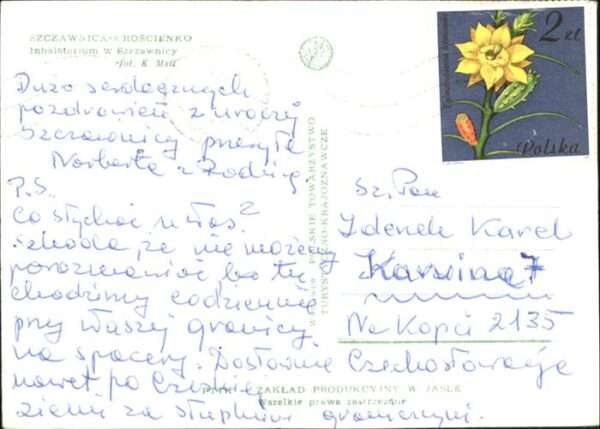 SZCZAWNICA-KROŚCIENKO
Inhalatorium w Szczawnicy
fot. K
2 zł
Polska
Dużo serdecznych
pozdrowień z uroczej
Szczawnicy przesyła
Norberta z Rodziną.
P.S.
Co słychać u Was?
Szkoda, że nie możemy
porozmawiać bo tu
chodzimy codziennie
przy Waszej granicy
na spacery. Dosłownie
nawet po Czeskiej
ziemi za słupkami granicznymi.
POLSKIE TOWARZYSTWO
TURYSTYCZNO-KRAJOZNAWCZE
Sz. Pan
Zdenek Karel
Karwina 7
Na Kopci 2135
Czechosłowacja
ZAKŁAD PRODUKCYJNY W JAŚLE
Wszelkie prawa zastrzeżone